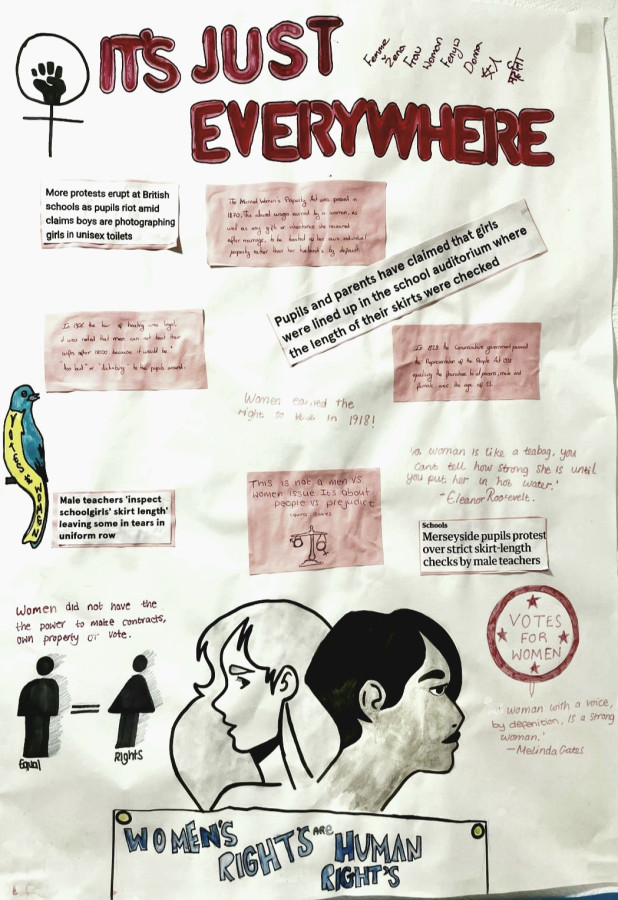 IT'S JUST
EVERYWHERE
Femme
Žena
Frau
Woman
Donna
女人
महिला
More protests erupt at British
schools as pupils riot amid
claims boys are photographing
girls in unisex toilets
The Married Women's Property Act was passed in
1870. The allowed wages earned by a woman, as
well as any gift or inheritance she received
after marriage, to be treated as her own individual
property rather than her husband's by default.
Pupils and parents have claimed that girls
were lined up in the school auditorium where
the length of their skirts were checked
it was noted that men can not beat their
wifes after because it would be
"too loud" or "disturbing" to the people around.
In 1928 the Conservative government passed
the Representation of the People Act
equalising the franchise to all persons, male and
female over the age of 21.
Women earned the
right to vote in 1918!
VOTES 4 WOMEN
'a woman is like a teabag, you
cant tell how strong she is until
you put her in hot water.'
- Eleanor Roosevelt.
Male teachers 'inspect
schoolgirls' skirt length'
leaving some in tears in
uniform row
This is not a men vs
women issue. Its about
people vs prejudice
Laura Bates
Schools
Merseyside pupils protest
over strict skirt-length
checks by male teachers
Women did not have the
the power to make contracts,
own property or vote.
=
Equal
Rights
VOTES
FOR
WOMEN
'woman with a voice,
by defenition, is a strong
woman.'
— Melinda Gates
WOMEN'S
RIGHT'S ARE HUMAN
RIGHT'S